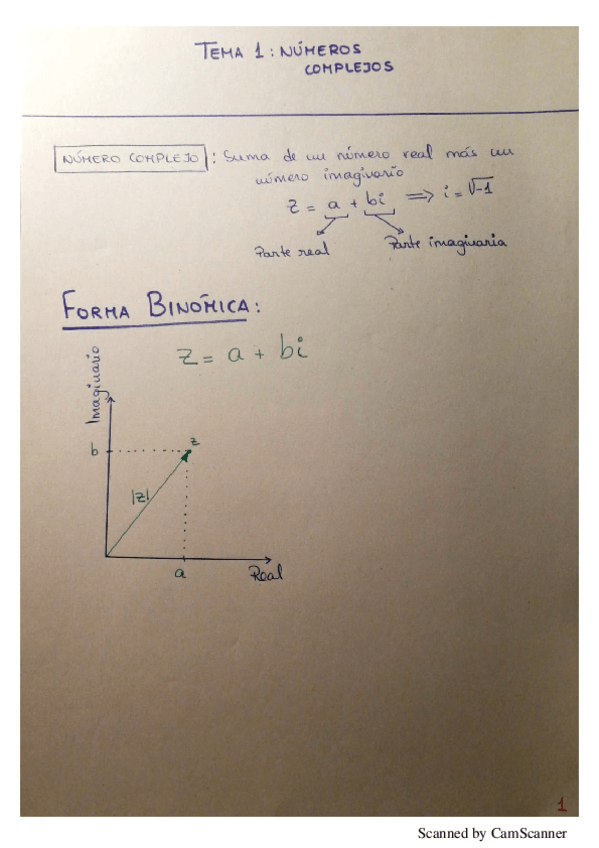 TEMA 1: NÚMEROS
COMPLEJOS
NÚMERO COMPLEJO: Suma de un número real más un
número imaginario
z = a + bi ⟹ i = √-1
Parte real
Parte imaginaria
FORMA BINÓMICA:
z = a + bi
Imaginario
b
z
|z|
a
Real
1
Scanned by CamScanner